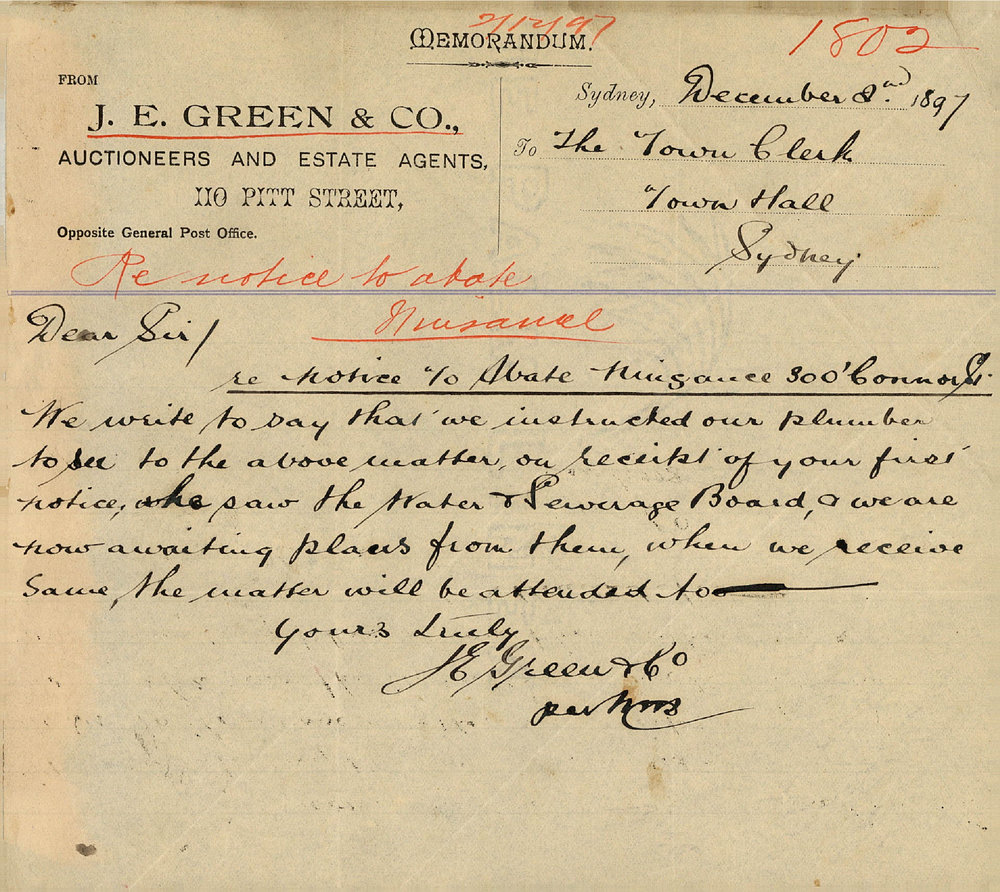 2/12/97
MEMORANDUM.
1802
FROM
J. E. GREEN & CO.,
AUCTIONEERS AND ESTATE AGENTS,
110 PITT STREET,
Opposite General Post Office.
Sydney, December 2nd. 1897
To The Town Clerk
Town Hall
Sydney
Re notice to abate
Nuisance
Dear Sir/
re Notice to Abate Nuisance 30 O'Connor St.
We write to say that we instructed our plumber
to see to the above matter, on receipt of your first
notice, who saw the Water & Sewerage Board, & we are
now awaiting plans from them, when we receive
same, the matter will be attended to
Yours truly
J E Green & Co
per